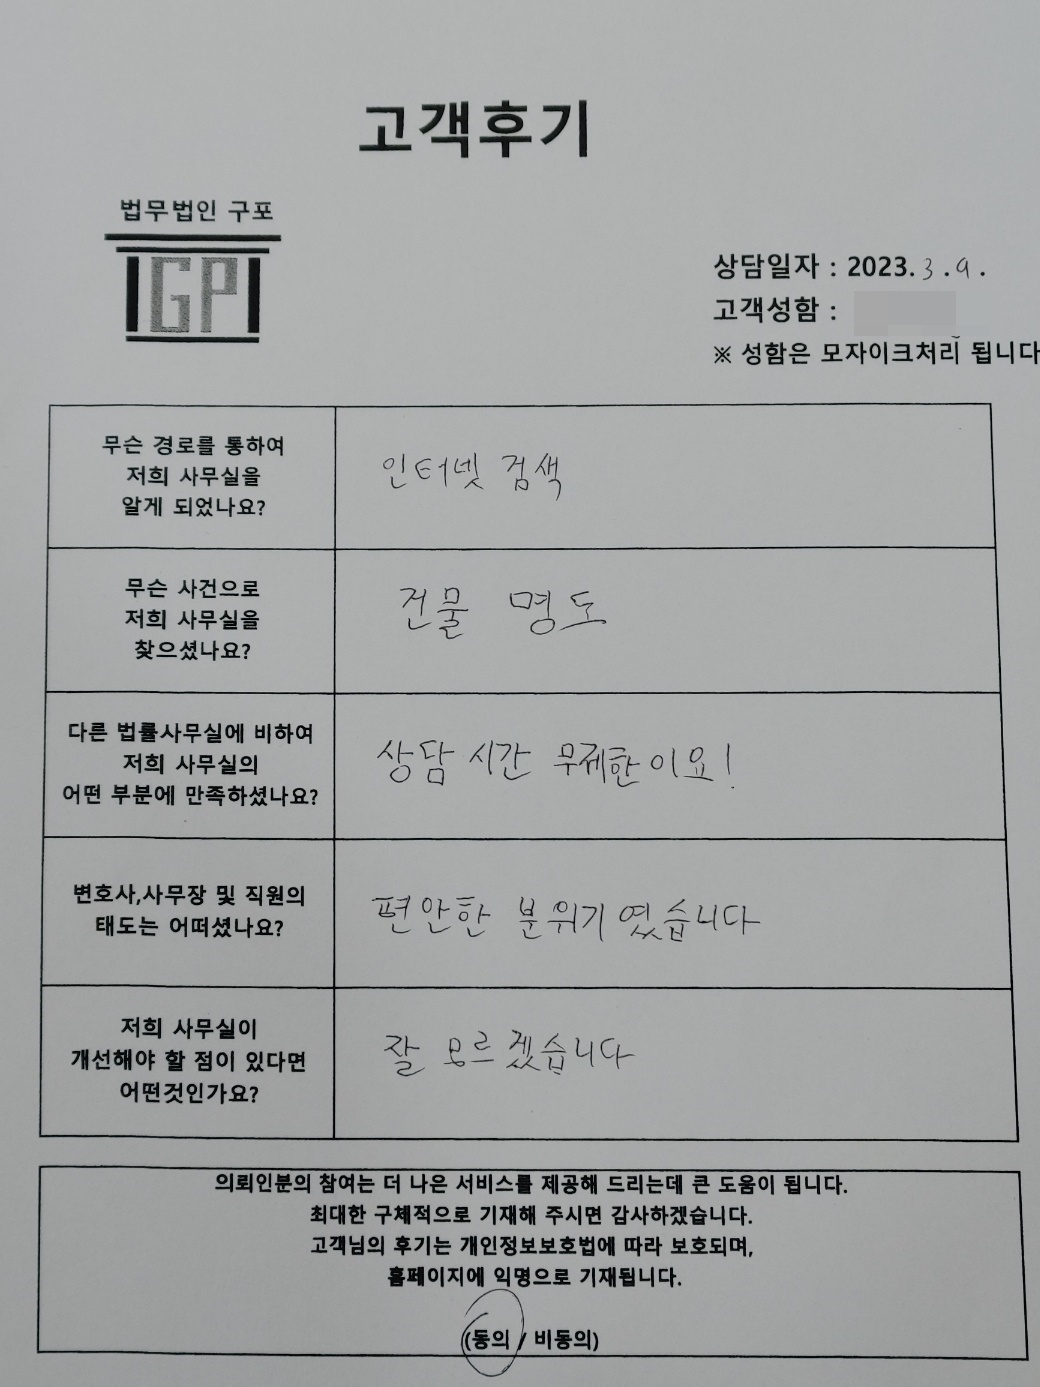 고객후기
법무법인 구포
GP
상담일자 : 2023. 3 . 9 .
고객성함 :
※ 성함은 모자이크처리 됩니다
무슨 경로를 통하여
저희 사무실을
알게 되었나요?
인터넷 검색
무슨 사건으로
저희 사무실을
찾으셨나요?
건물 명도
다른 법률사무실에 비하여
저희 사무실의
어떤 부분에 만족하셨나요?
상담 시간 무제한이요!
변호사,사무장 및 직원의
태도는 어떠셨나요?
편안한 분위기 였습니다
저희 사무실이
개선해야 할 점이 있다면
어떤것인가요?
잘 모르겠습니다
의뢰인분의 참여는 더 나은 서비스를 제공해 드리는데 큰 도움이 됩니다.
최대한 구체적으로 기재해 주시면 감사하겠습니다.
고객님의 후기는 개인정보보호법에 따라 보호되며,
홈페이지에 익명으로 기재됩니다.
(동의 / 비동의)